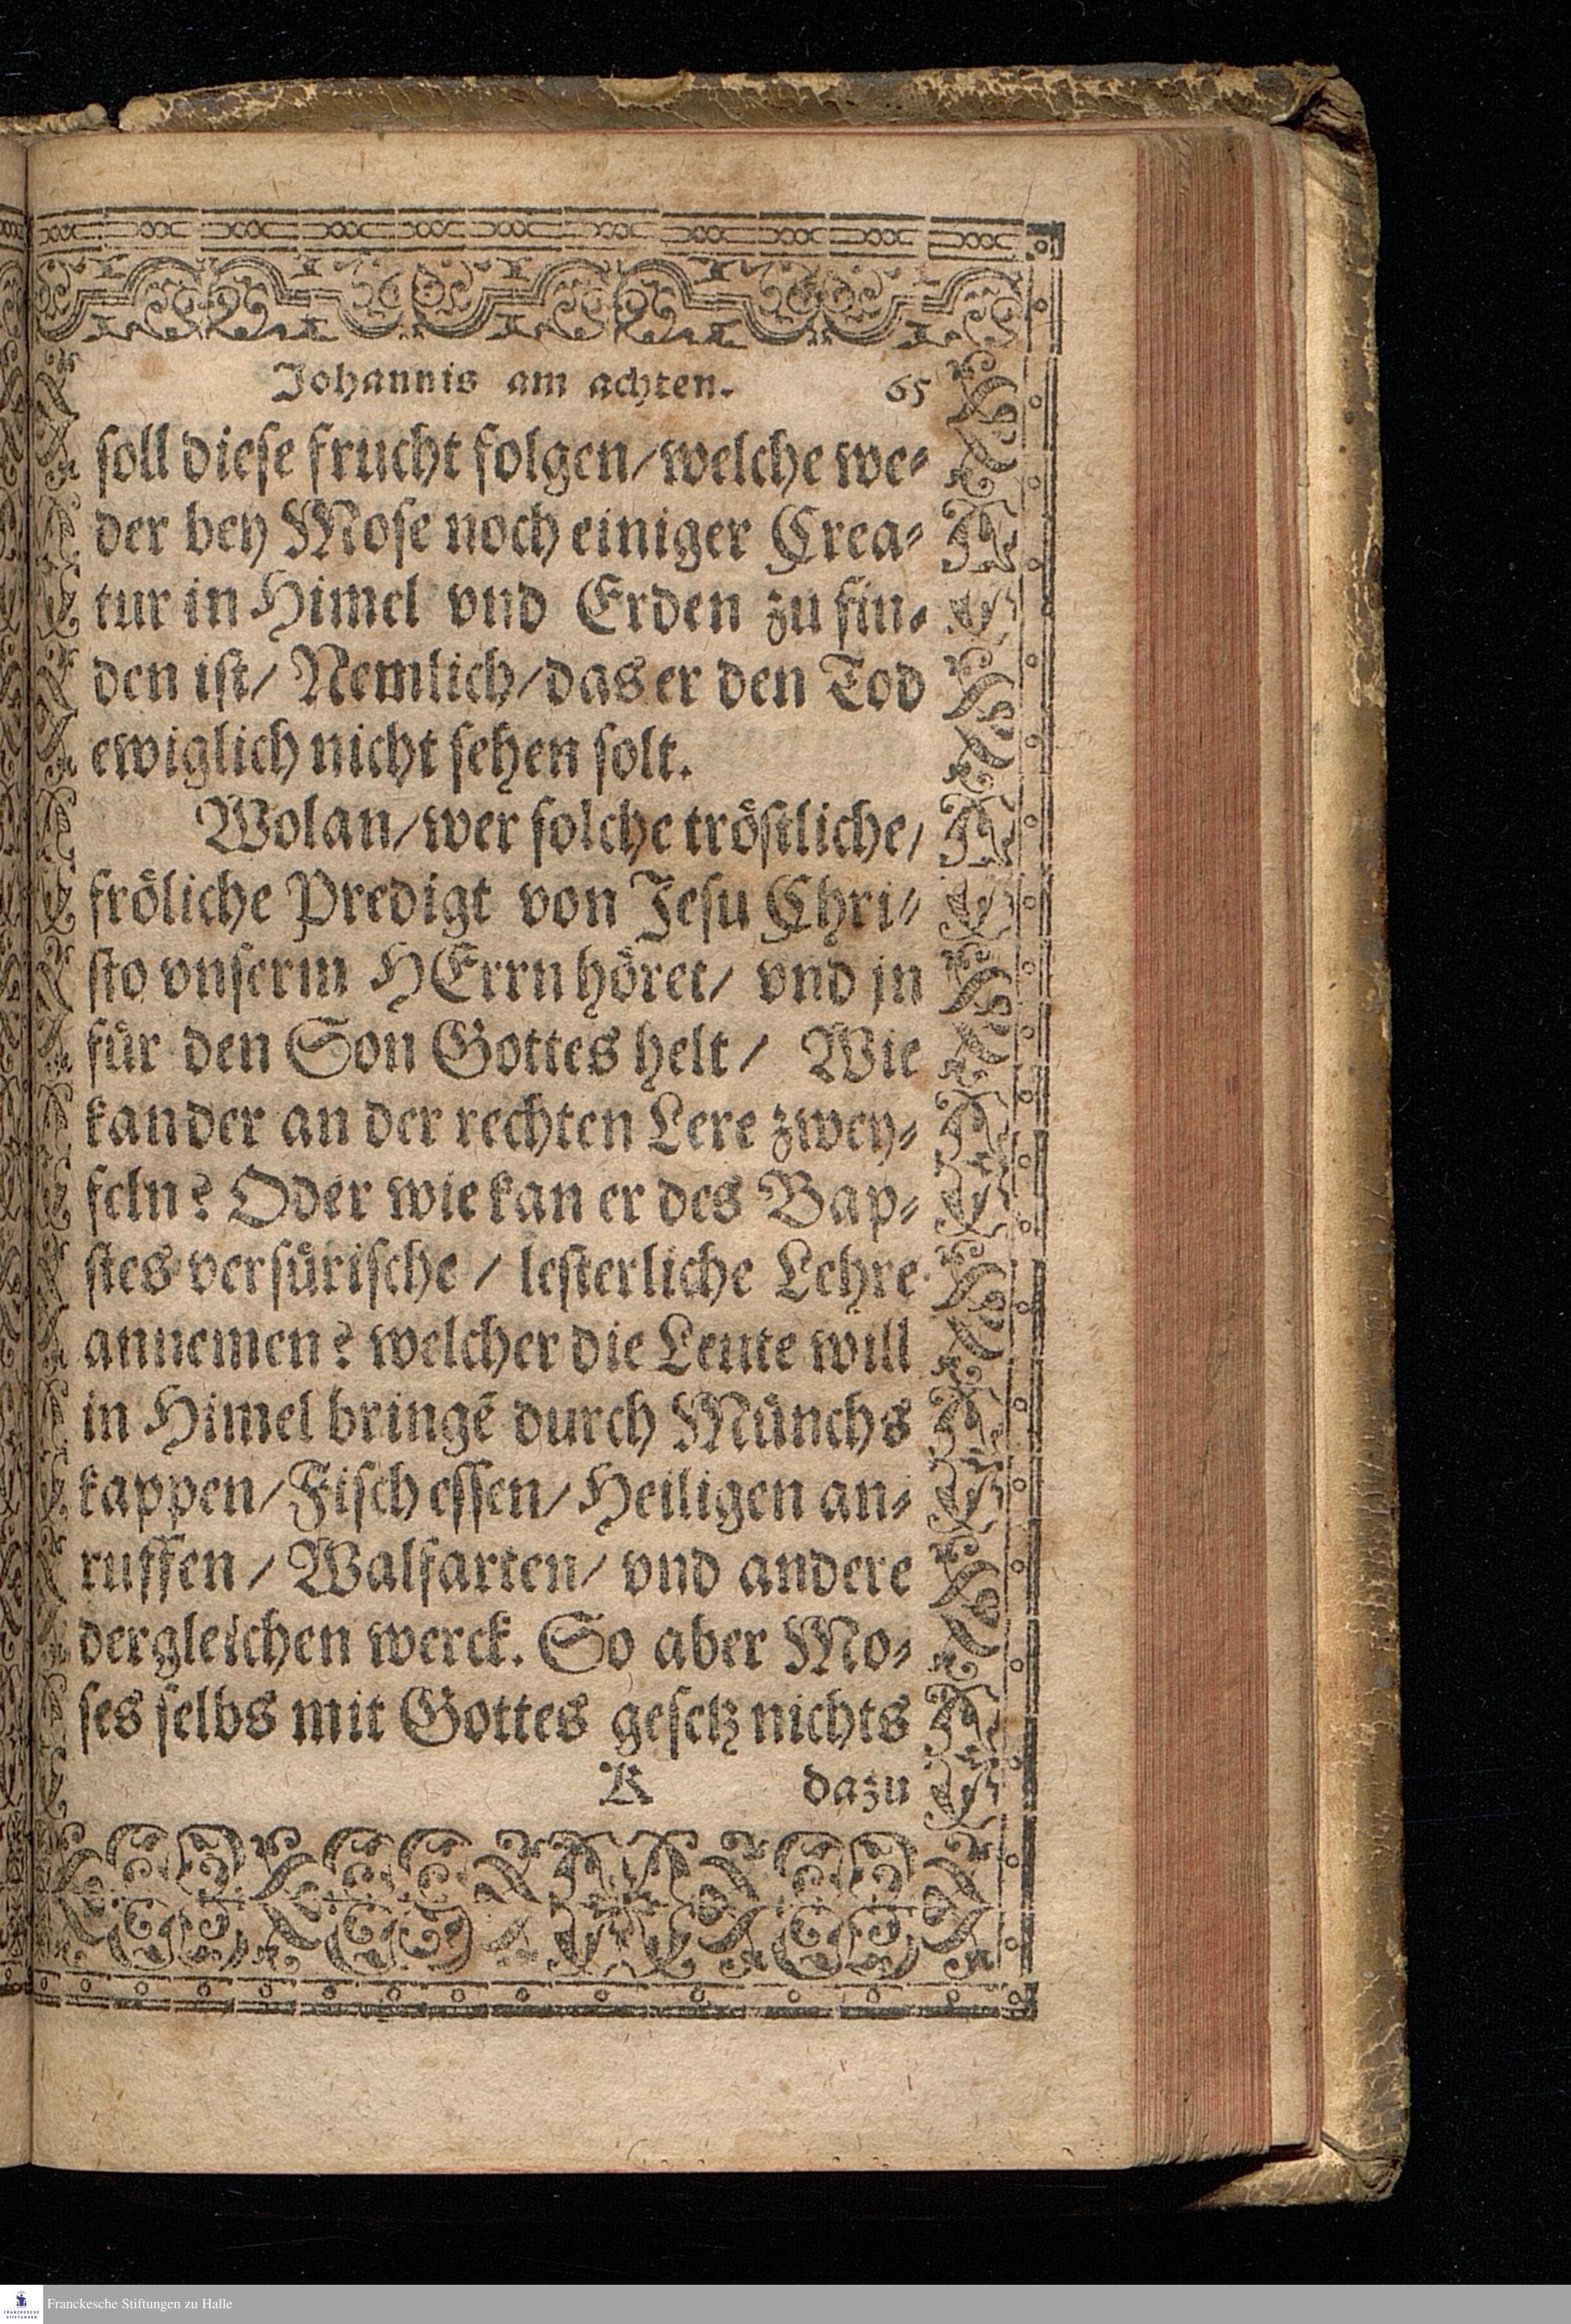 Johannis am achten. 65
soll diese frucht folgen/ welche we⸗
der bey Mose noch einiger Crea⸗
tur in Himel vnd Erden zu fin⸗
den ist/ Nemlich/ das er den Tod
ewiglich nicht sehen solt.
Wolan/ wer solche tröstliche/
fröliche Predigt von Jesu Chri⸗
sto vnserm HErrn höret/ vnd jn
für den Son Gottes helt/ Wie
kan der an der rechten Lere zwey⸗
feln? Oder wie kan er des Bap⸗
stes verfürische/ lesterliche Lehre
annemen? welcher die Leute will
in Himel bringē durch Münchs
kappen/ Fisch essen/ Heiligen an⸗
ruffen/ Walfarten/ vnd andere
dergleichen werck. So aber Mo⸗
ses selbs mit Gottes gesetz nichts
K dazu
FRANCKESCHE STIFTUNGEN
Franckesche Stiftungen zu Halle